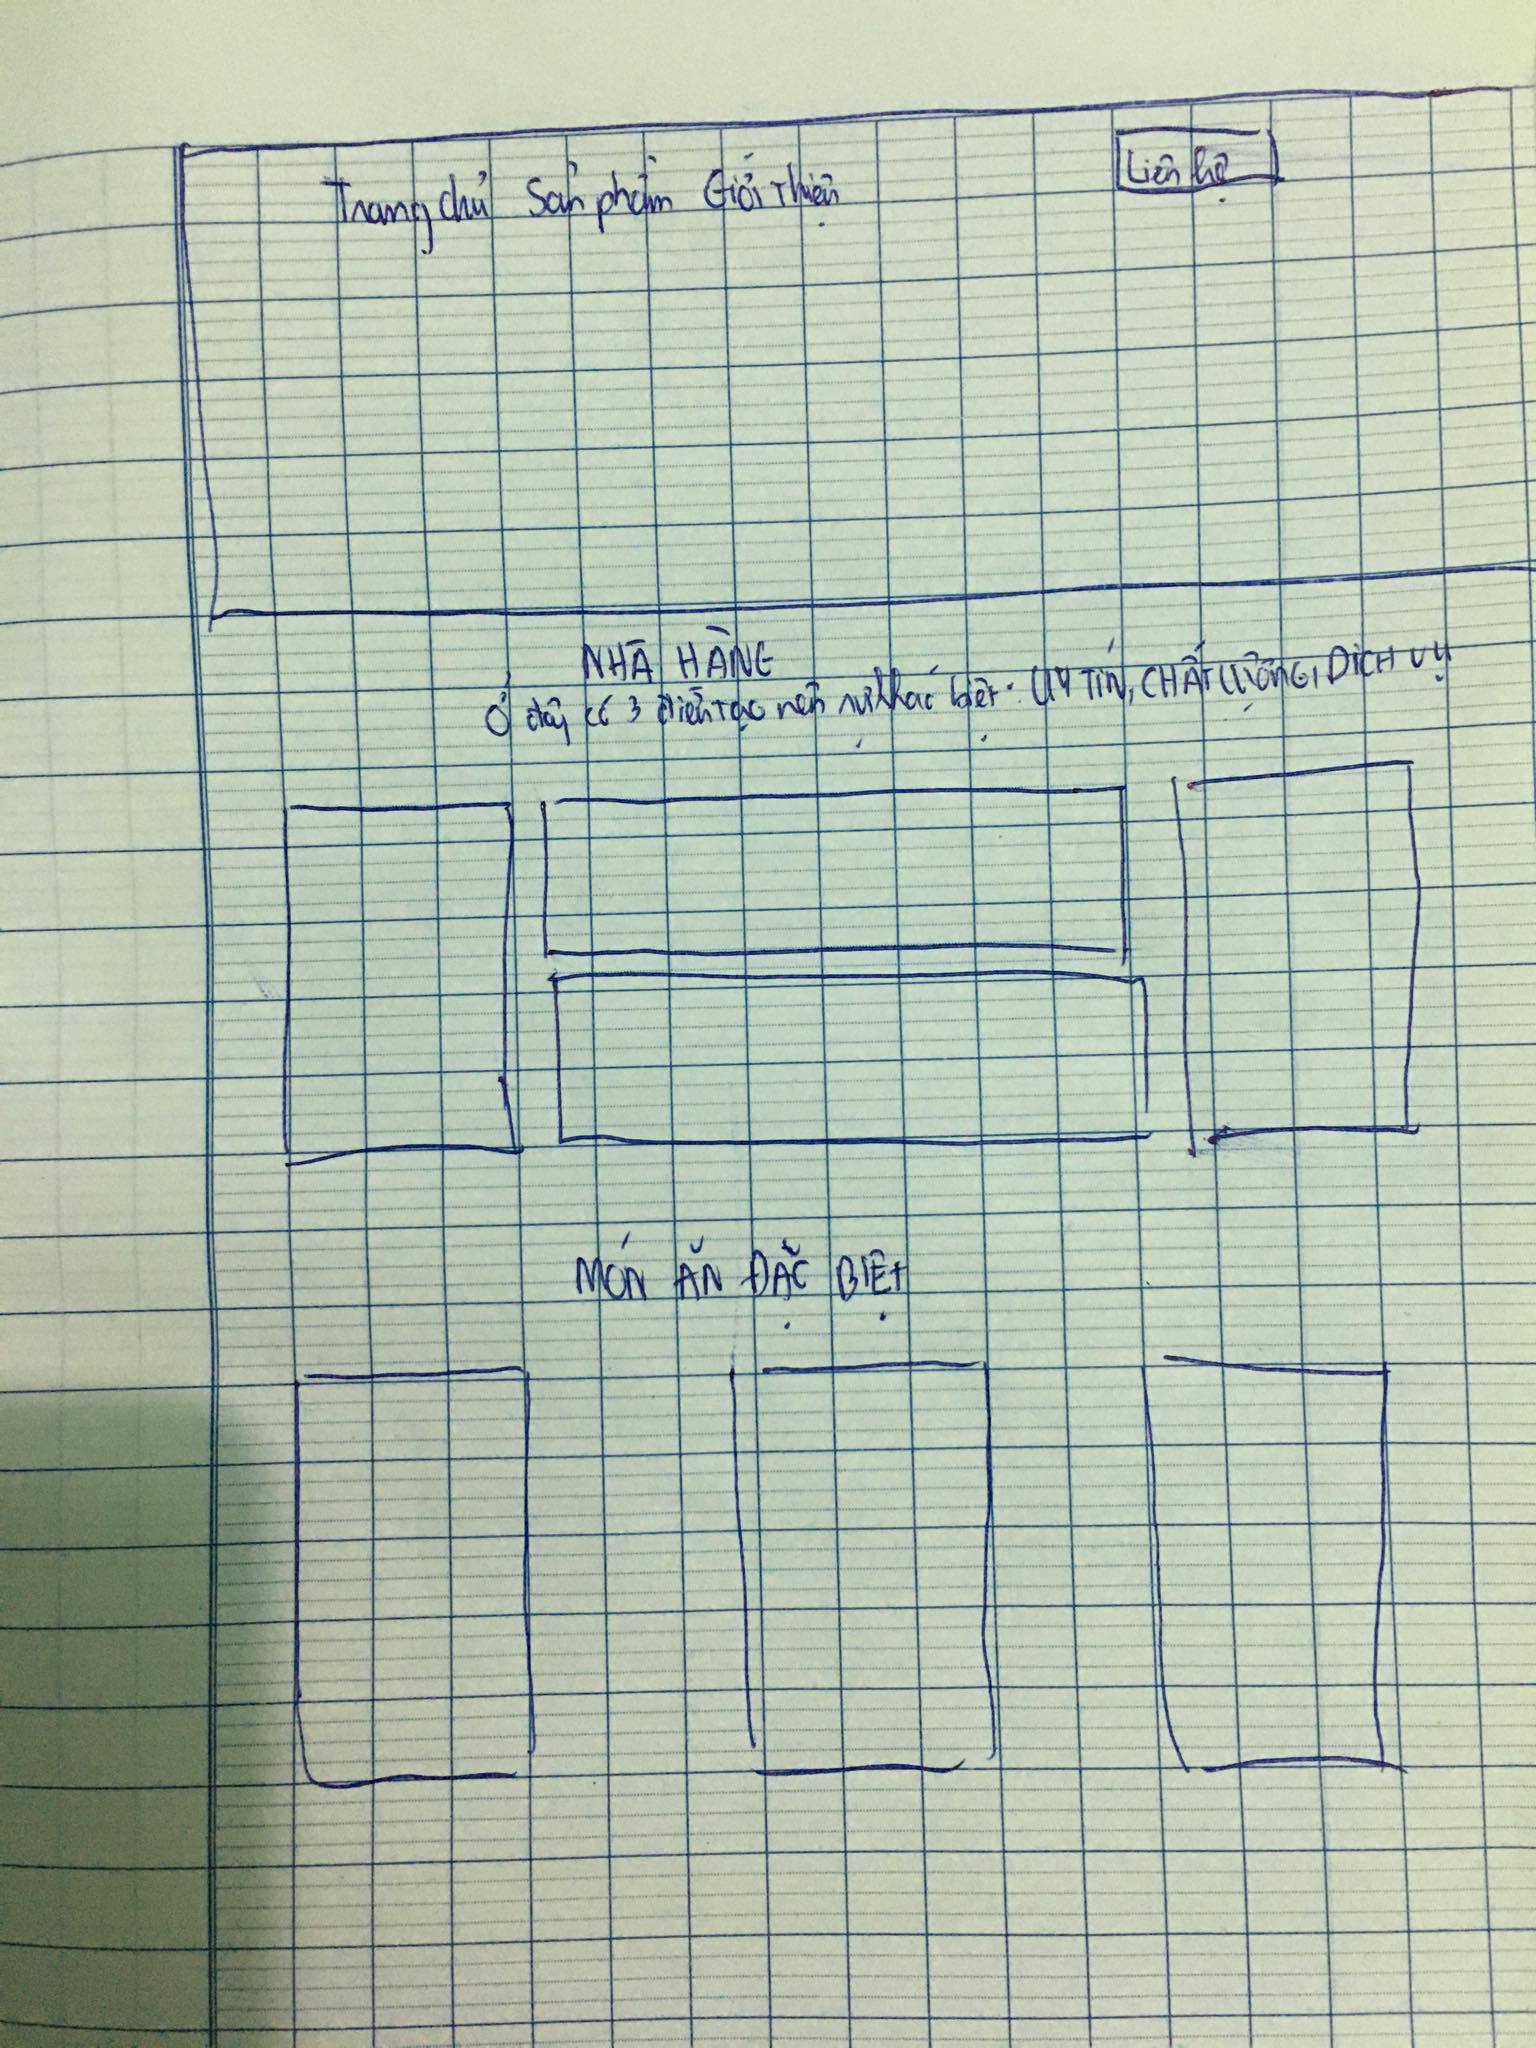 Trang chủ Sản phẩm Giới thiệu
Liên hệ
NHÀ HÀNG
Ở đây có 3 điều tạo nên sự khác biệt: UY TÍN, CHẤT LƯỢNG, DỊCH VỤ
MÓN ĂN ĐẶC BIỆT